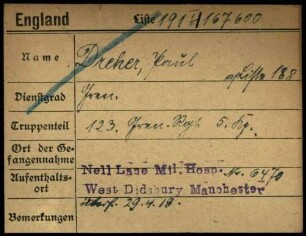 England Liste 191 / 167600
Name Dreher, Paul
Liste 188
Dienstgrad Gren.
Truppenteil 123. Gren. Rgt. 5. Kp.
Ort der Ge-
fangennahme
Aufenthalts- Nell Lane Mil. Hosp. Nr. 6470
ort West Didsbury Manchester
29.4.18.
Bemerkungen